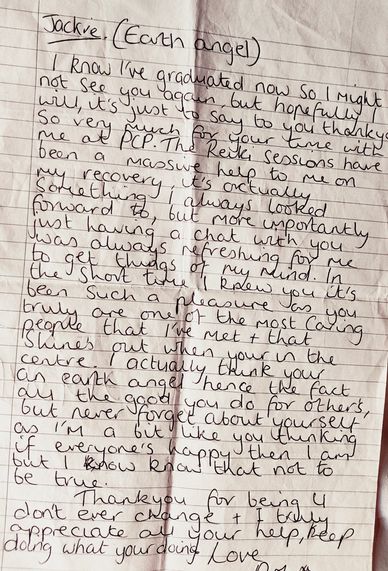 Jackie. (Earth angel)
I know I've graduated now so I might
not see you again but hopefully I
will, it's just to say to you thankyou
so very much for your time with
me at PCP. The Reiki sessions have
been a massive help to me on
my recovery, it's actually
something I always looked
forward to, but more importantly
just having a chat with you
was always refreshing for me
to get things of my mind. In
the short time I knew you it's
been such a pleasure as you
truly are one of the most caring
people that I've met + that
shines out when your in the
centre. I actually think your
an earth angel hence the fact
all the good you do for others,
but never forget about yourself
as I'm a bit like you thinking
if everyone's happy then I am
but I know know that not to
be true.
Thankyou for being U
don't ever change + I truly
appreciate all your help, keep
doing what your doing Love